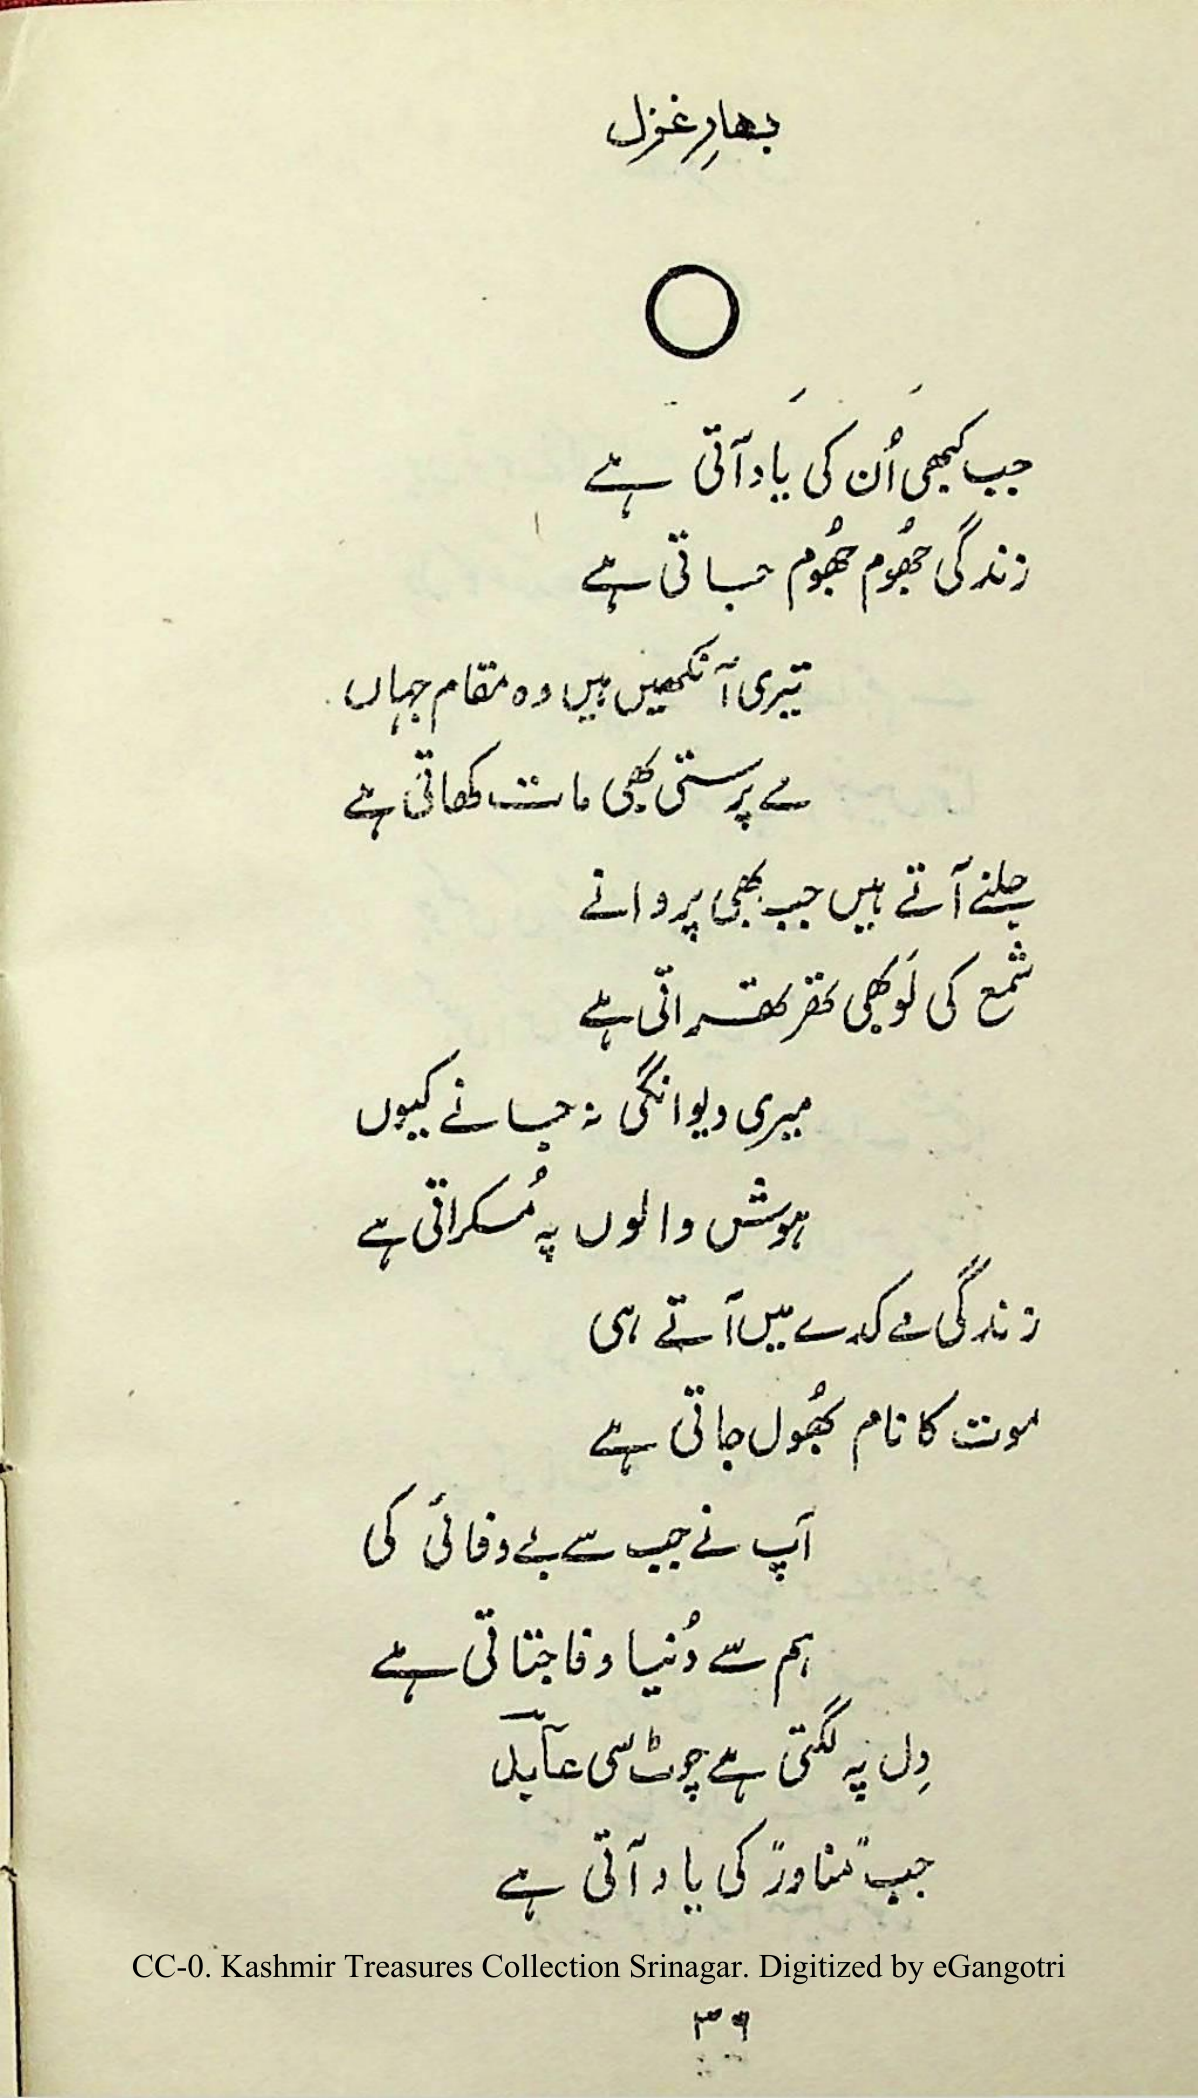 بہارِ غزل
جب کبھی اُن کی یاد آتی ہے
زندگی جھُوم جھُوم جاتی ہے
تیری آنکھیں ہیں وہ مقام جہاں
مے پرستی بھی مات کھاتی ہے
جلنے آتے ہیں جب بھی پروانے
شمع کی لَو بھی تھر تھراتی ہے
میری دیوانگی نہ جانے کیوں
ہوش والوں پہ مُسکراتی ہے
زندگی مے کدے میں آتے ہی
موت کا نام بھُول جاتی ہے
آپ نے جب سے بے وفائی کی
ہم سے دُنیا وفا جتاتی ہے
دِل پہ لگتی ہے چوٹ سی عابد
جب "مناور" کی یاد آتی ہے
CC-0. Kashmir Treasures Collection Srinagar. Digitized by eGangotri
۳۹